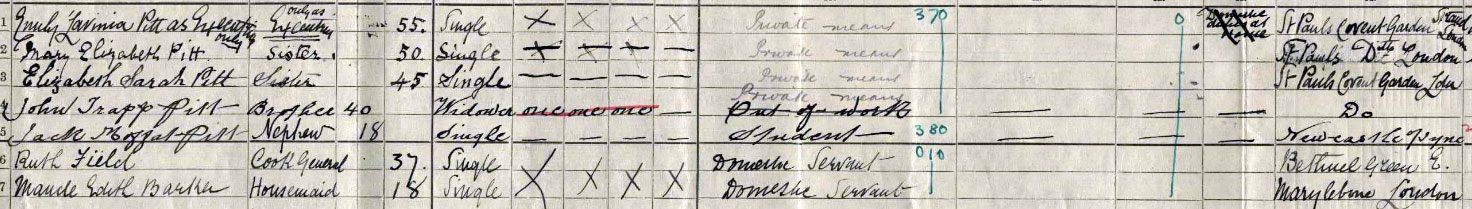 1 Emily Lavinia Pitt as Executrix only Executrix only as 55. Single Private means 370 0 St Pauls Covent Garden Strand London
2 Mary Elizabeth Pitt Sister. 50. Single Private means St Pauls Ditto London
3 Elizabeth Sarah Pitt Sister 45 Single Private means St Pauls Covent Garden Ldn
4 John Trapp Pitt Brother 40 Widower one one one Private means Out of work Do
5 Jack Moffat Pitt Nephew 18 Single Student 380 Newcastle Tyne
6 Ruth Field Cook General 37. Single Domestic Servant 010 Bethnel Green E.
7 Maude Edith Barker Housemaid 18 Single Domestic Servant Marylebone London